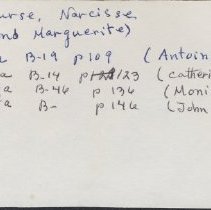 urse, Narcisse
nd Marguerite)
a B-19 p 109 (Antoin
a B-14 p 123 (catheri
a B-46 p 136 (Moni
a B- p 146 (John